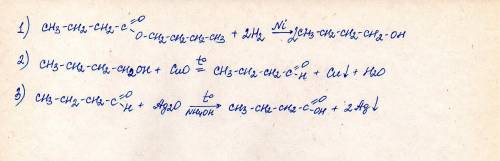 1) CH3-CH2-CH2-C=O O-CH2-CH2-CH2-CH3 + 2H2 Ni→ 2CH3-CH2-CH2-CH2-OH
2) CH3-CH2-CH2-CH2OH + CuO t°= CH3-CH2-CH2-C=O H + Cu↓ + H2O
3) CH3-CH2-CH2-C=O H + Ag2O t°→ NH4OH CH3-CH2-CH2-C=O OH + 2Ag↓